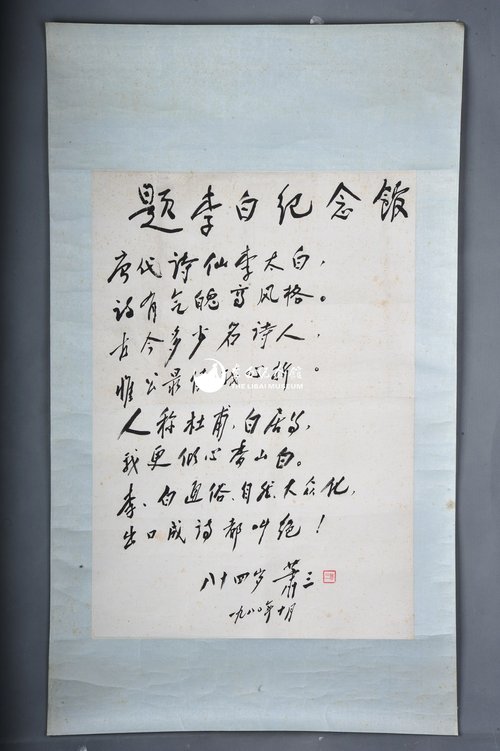 题李白纪念馆
唐代诗仙李太白,
诗有气魄高风格。
古今多少名诗人,
惟公最使我心折。
人称杜甫、白居易,
我更倾心香山白。
李、白通俗、自然、大众化,
出口成诗都叫绝!
八十四岁 萧三
一九八〇年十月
李白纪念馆
THE LIBAI MUSEUM